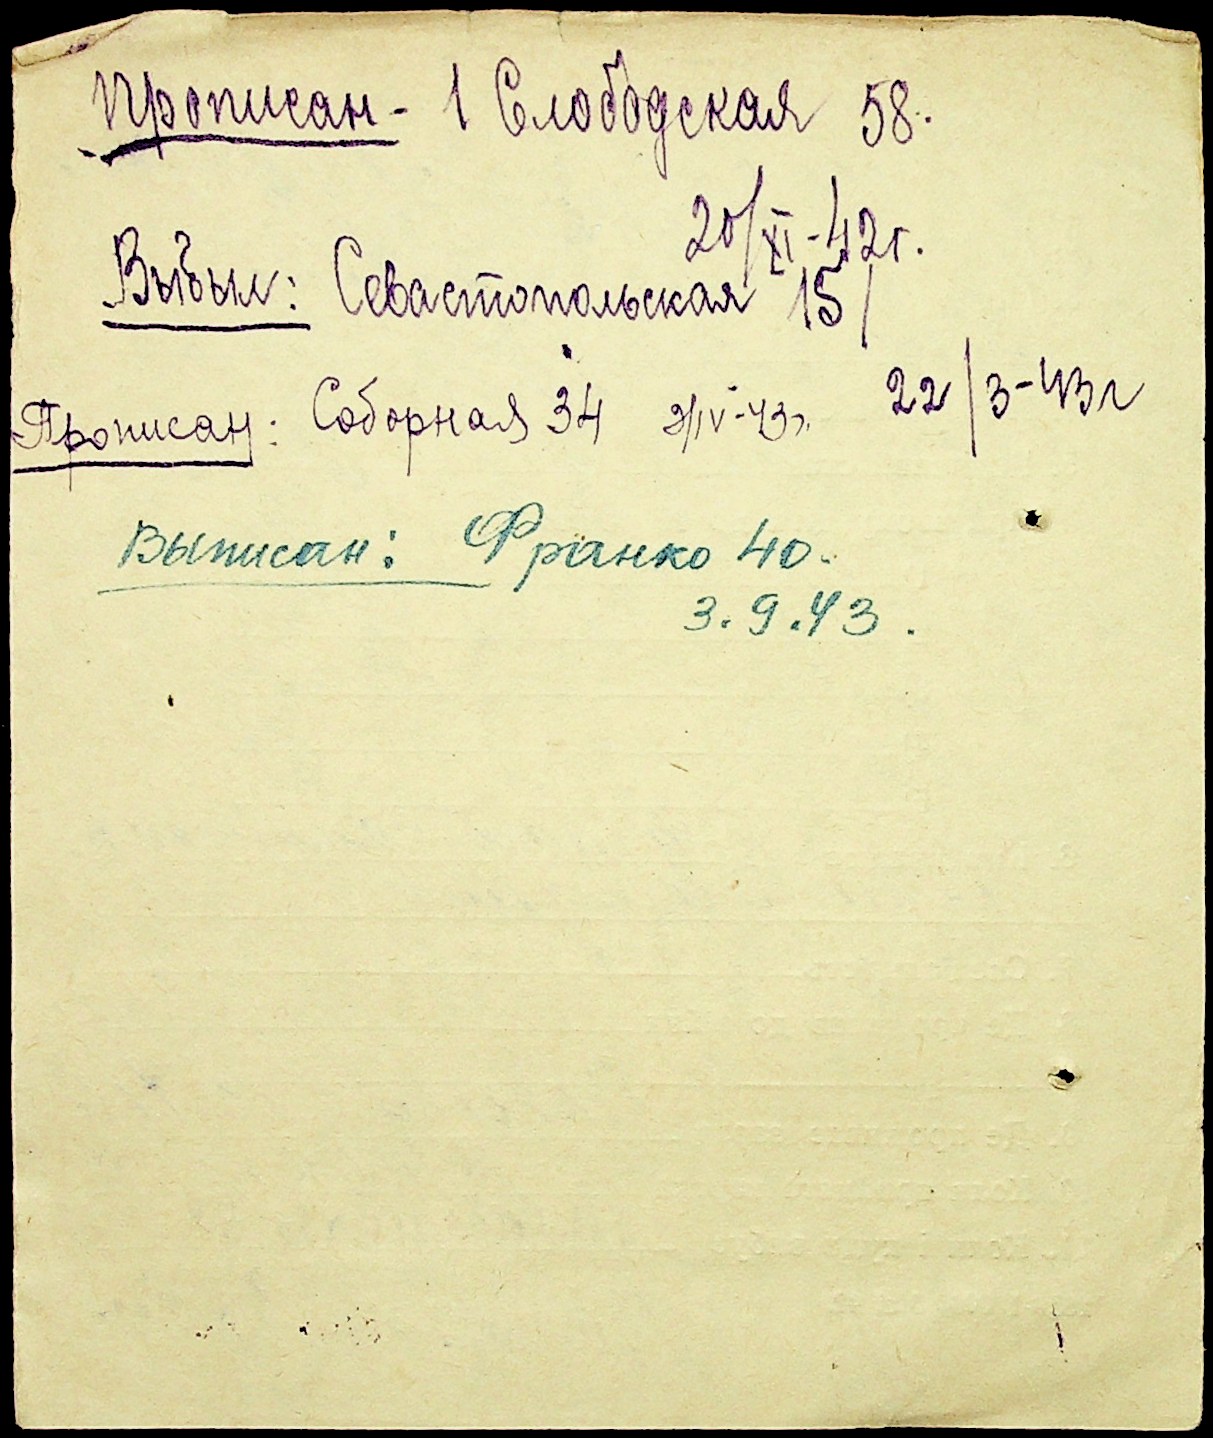 Прописан - 1 Слободская 58.
20/XI-42г.
Выбыл: Севастопольская 15/
22/3-43г
Прописан: Соборная 34 2/IV-43г.
Выписан: Франко 40.
3.9.43.